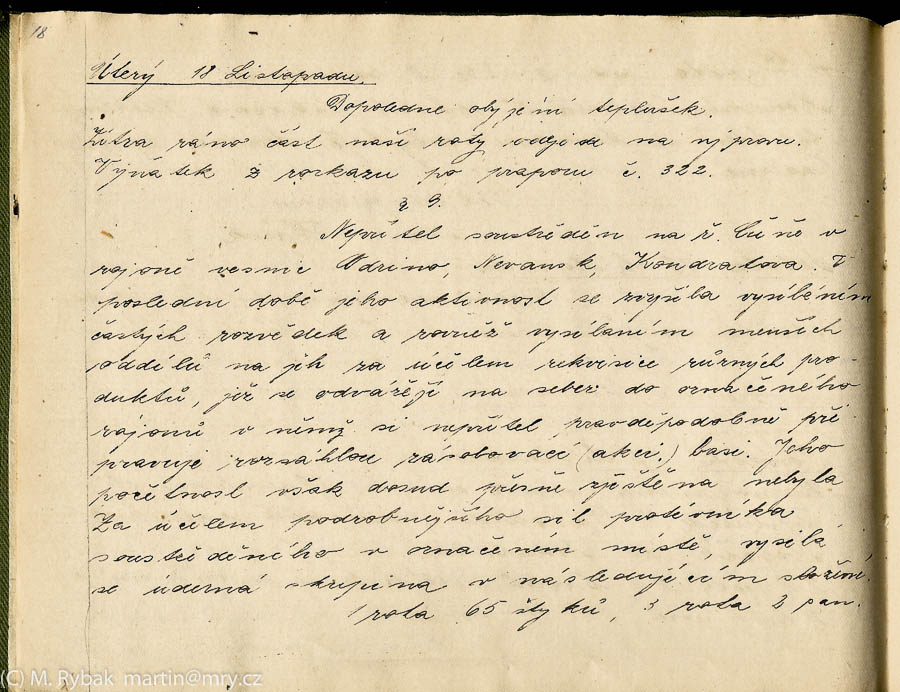 18
Úterý 18 Listopadu.
Dopoledne obyjení teplušek.
Zítra ráno část naší roty odjede na výpravu.
Výňatek z rozkazu po praporu č. 322.
§ 9.
Nepřítel soustředěn na ř. Čúně v
rajoně vesnic Udrino, Nevansk, Kondratova. V
poslední době jeho aktivnost se zvýšila vysíláním
častých rozvědek a rovněž vysíláním menších
oddílů na jih za účelem rekvisice různých pro-
duktů, jež se odvážejí na sever do označeného
rajonů v němž si nepřítel pravděpodobně při-
pravuje rozsáhlou zásobovací (akci.) basi. Jeho
početnost však dosud přesně zjištěna nebyla
Za účelem podrobnějšího sil protivníka
soustředěného v označeném místě, vysílá
se úderná skupina v následujícím složení.
1 rota 65 štyků, 3 rota 2 pan.
(C) M. Rybak martin@mry.cz